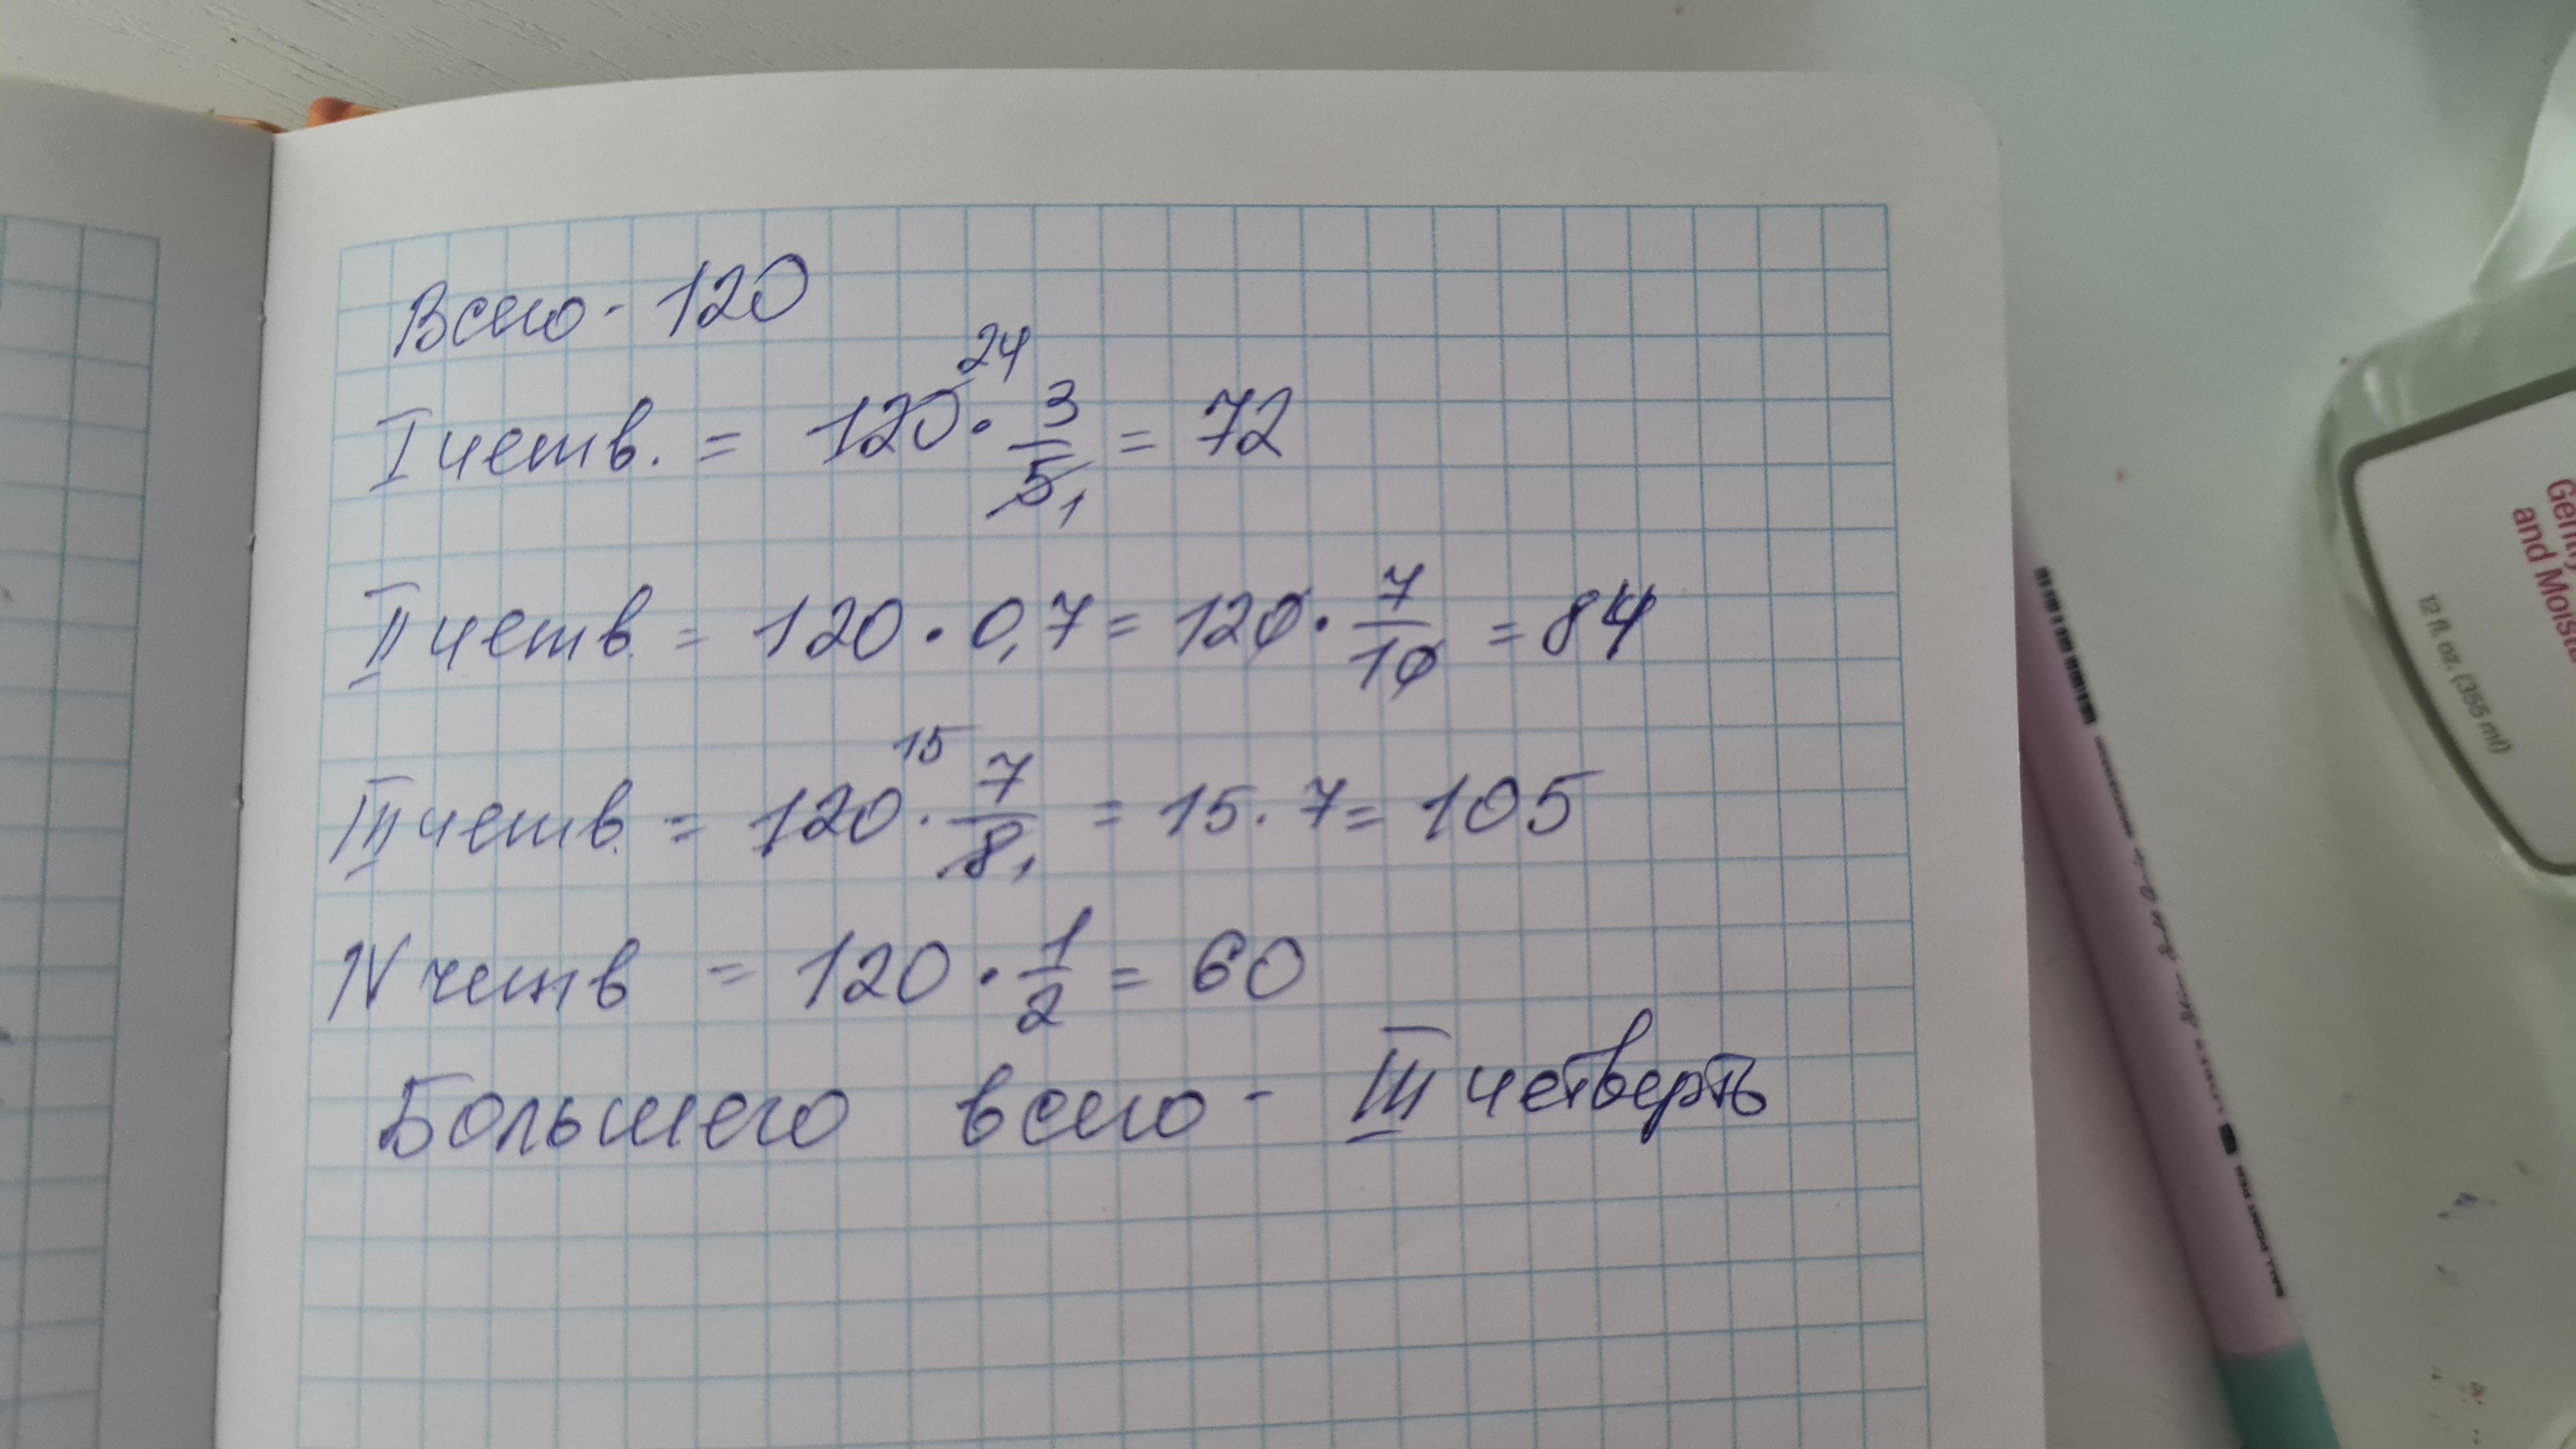 Всего - 120
I четв. = 120 24 · 3/5 1 = 72
II четв. = 120 · 0,7 = 120 · 7/10 = 84
III четв. = 120 15 · 7/8 1 = 15 · 7 = 105
IV четв = 120 · 1/2 = 60
Большего всего - III четверть
and Moistu
12 fl. oz. (355 ml)